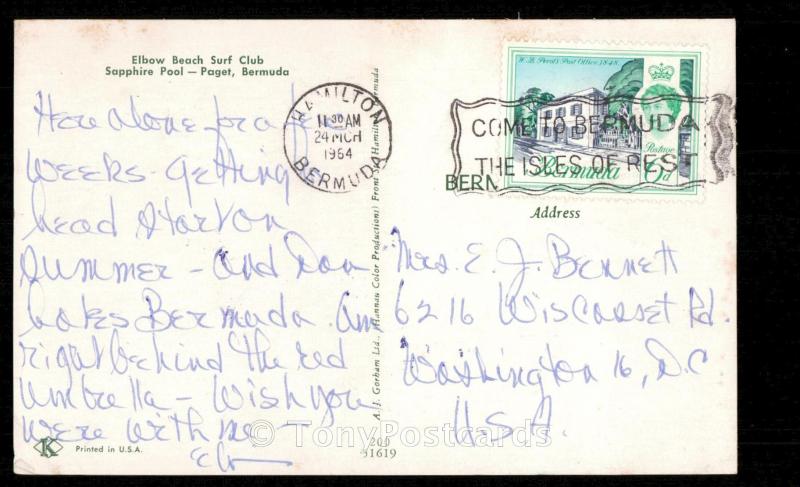 Elbow Beach Surf Club
Sapphire Pool — Paget, Bermuda
Here alone for a few
weeks - getting
head start on
summer - and Don
hates Bermuda. Am
right behind the red
umbrella - wish you
were with me -
K
Printed in U.S.A.
A. J. Gorham Ltd., (Hannau Color Productions) Front St. Hamilton, Bermuda
200
51619
HAMILTON
11 30 AM
24 MCH
1964
BERMUDA
W. B. Perot's Post Office, 1848
Postage
Bermuda
COME TO BERMUDA
THE ISLES OF REST
BERM
Address
Mrs. E. J. Bennett
6216 Wiscasset Rd.
Washington 16, D.C
U.S.A.
© TonyPostcards